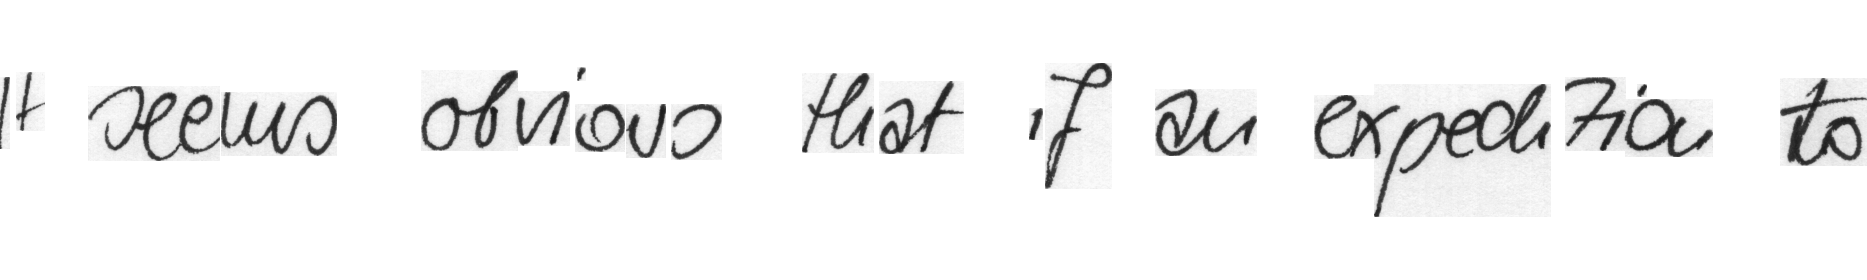 It seems obvious that if an expedition to